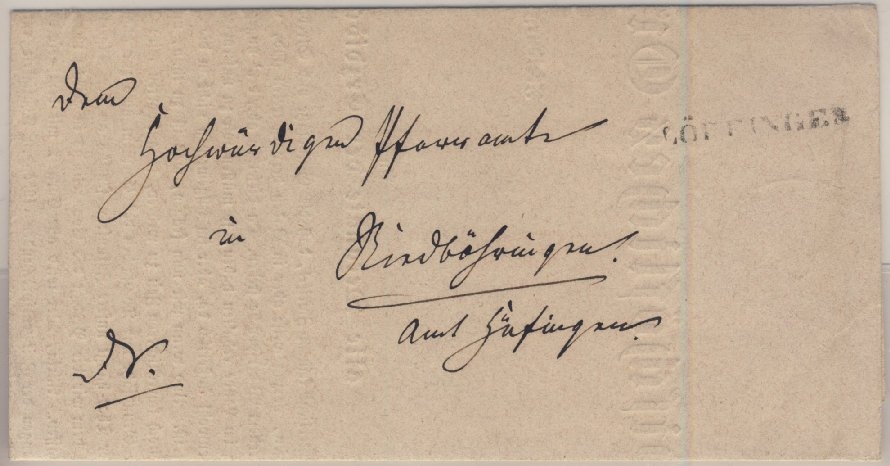 Dem
Hochwürdigen Pfarramte
in
Riedböhringen.
Amt Hüfingen.
LÖFFINGEN